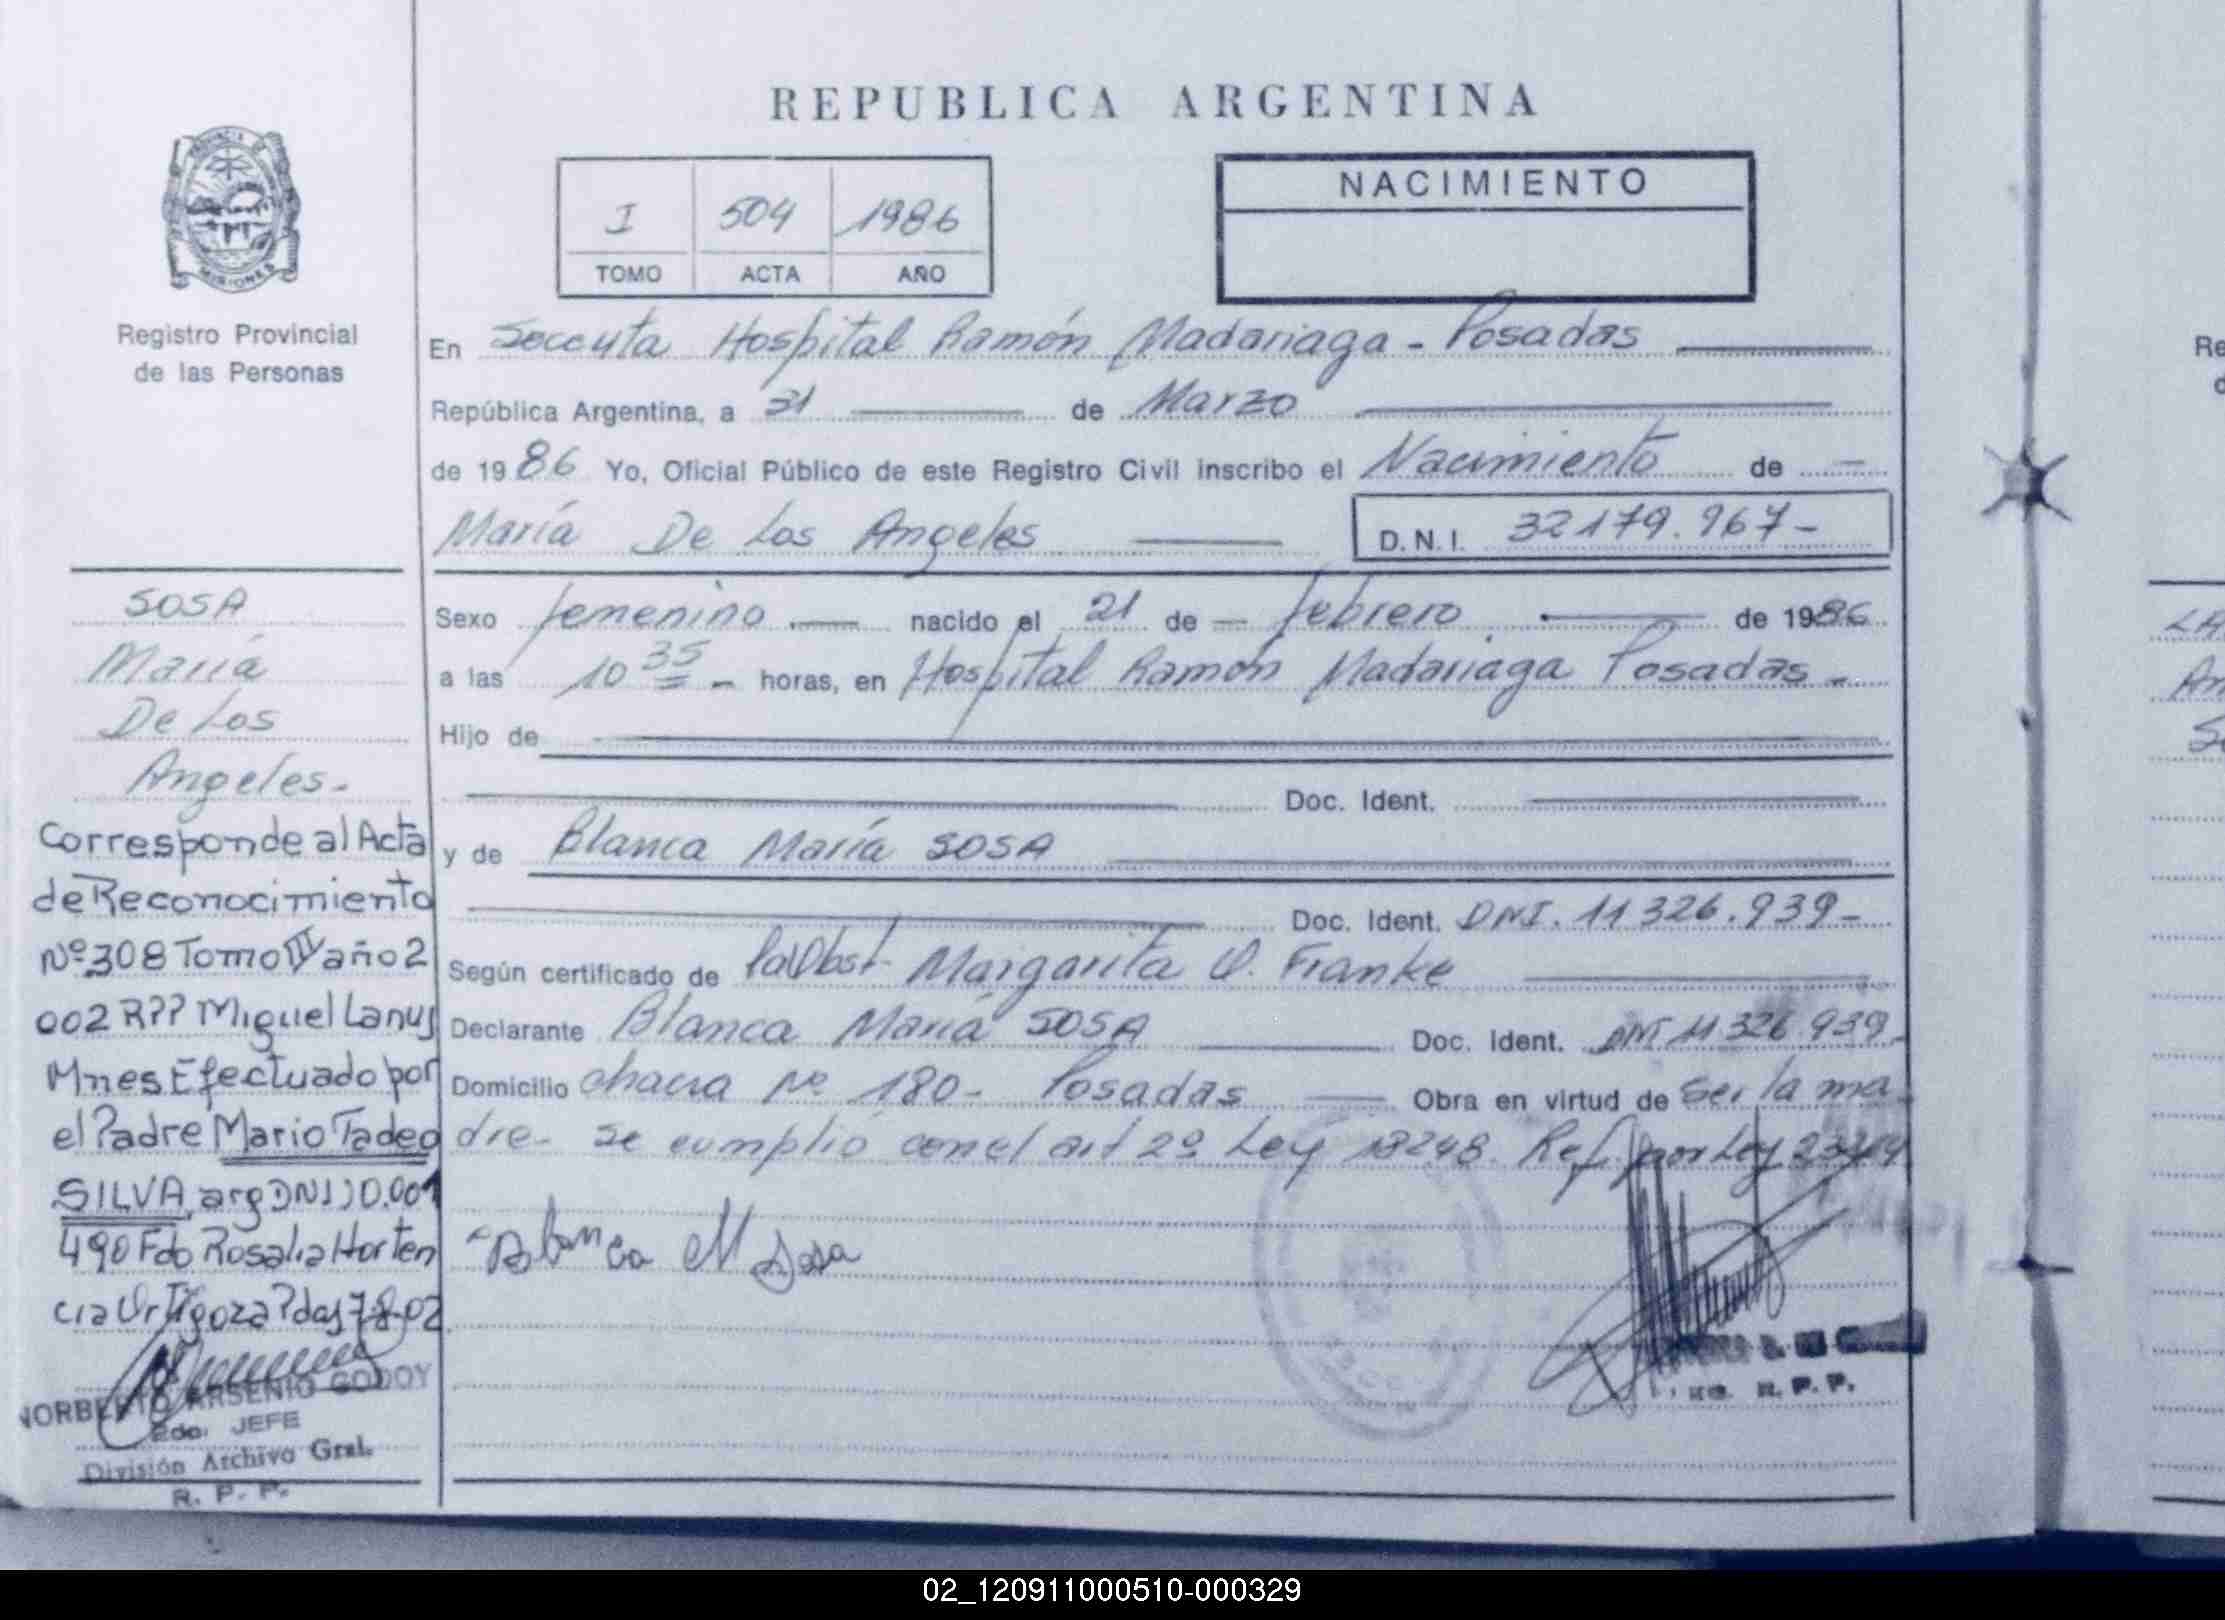 REPUBLICA ARGENTINA
PROVINCIA DE
MISIONES
Registro Provincial
de las Personas
I 504 1986
TOMO ACTA AÑO
NACIMIENTO
En Hospital Ramón Madariaga - Posadas
República Argentina, a 31 de Marzo
de 1986 Yo, Oficial Público de este Registro Civil inscribo el Nacimiento de
María De Los Angeles D.N.I. 32179.967-
Sexo femenino nacido el 21 de febrero de 1986
a las 10 35 horas, en Hospital Ramón Madariaga Posadas-
Hijo de
Doc. Ident.
y de Blanca María SOSA
Doc. Ident. DNI. 11326.939-
Según certificado de Margarita O. Franke
Declarante Blanca María SOSA Doc. Ident. DNI 11326.939-
Domicilio chacra Nº 180- Posadas Obra en virtud de ser la ma
dre- se cumplió con el art 2º Ley 18248. Ref. por Ley
Blanca M Sosa
R. P. P.
SOSA
María
De Los
Angeles-
Corresponde al Acta
de Reconocimiento
Nº 308 Tomo año 2
002 RPP Miguel Lanus
Mnes Efectuado por
el Padre Mario Tadeo
SILVA arg DNI
490 Fdo Rosalia Horten
cia Ortigoza Pdas 7-8-02
NORBERTO ARSENIO GODOY
JEFE
División Archivo Gral.
R. P. P.
Re
d
LA
An
S
02_120911000510-000329